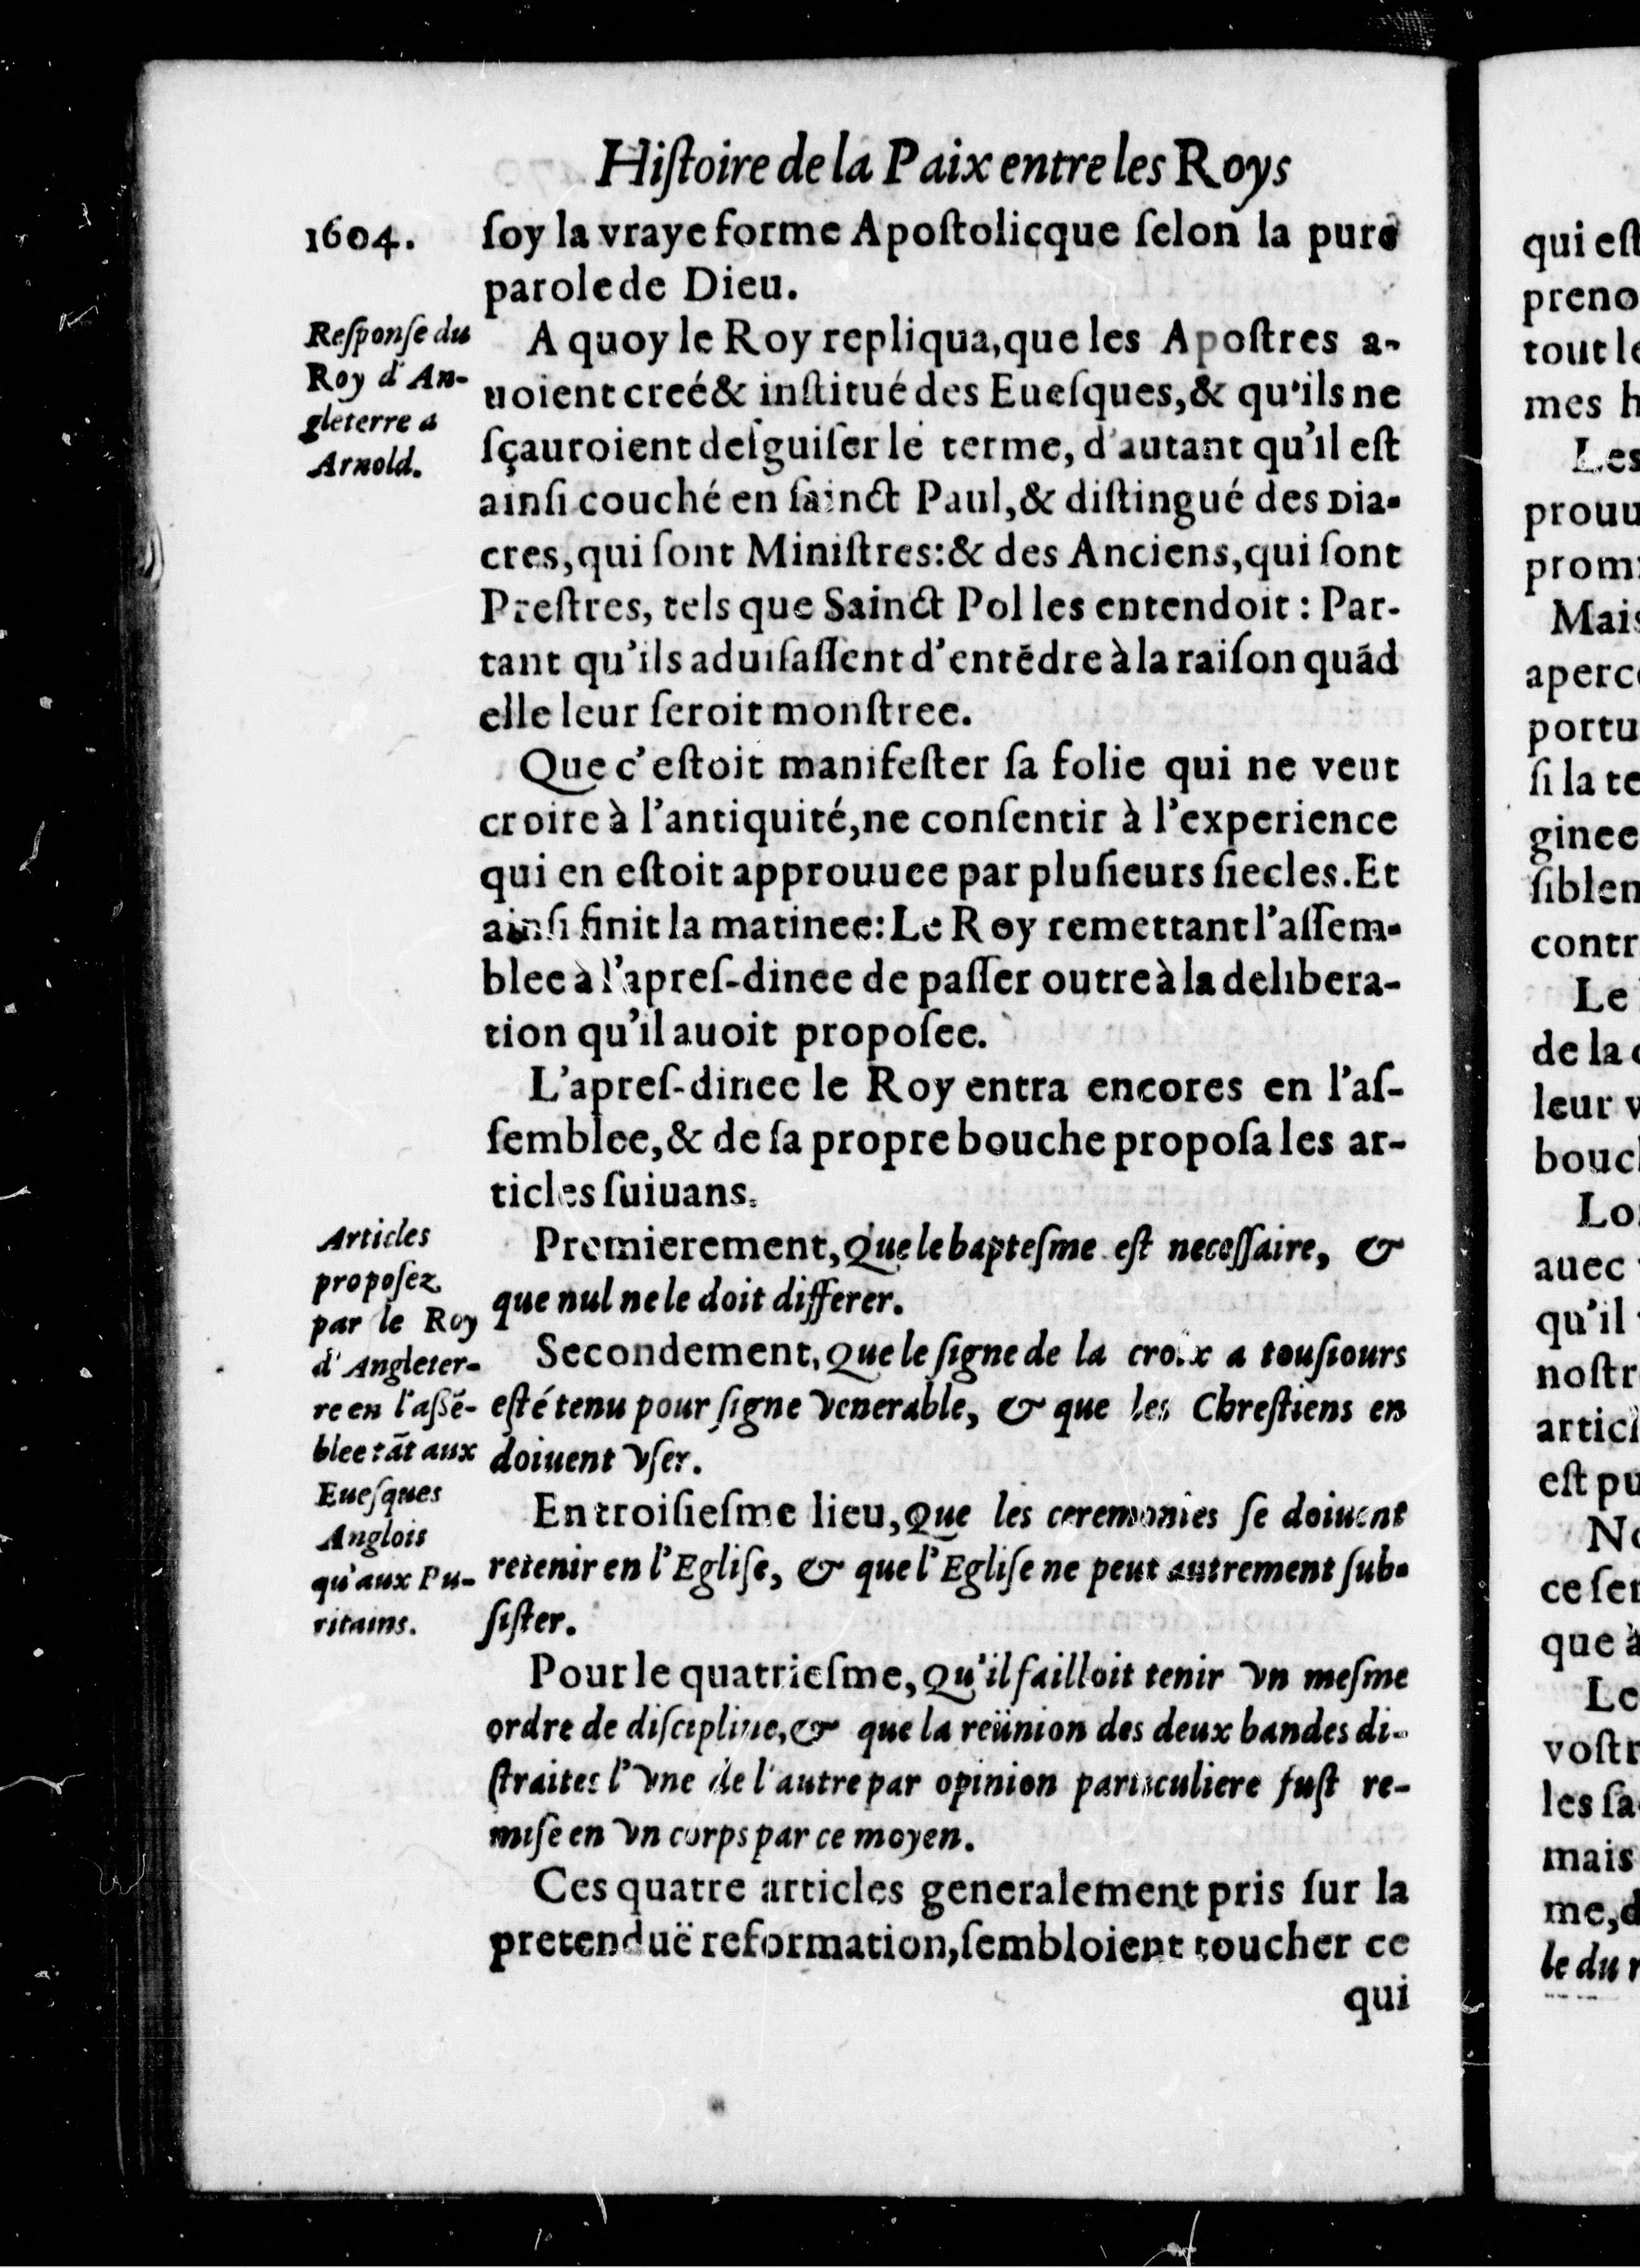 Hiſtoire de la Paix entre les Roys
1604.
ſoy la vraye forme Apoſtolicque ſelon la pure
parole de Dieu.
Reſponſe du
Roy d'An-
gleterre a
Arnold.
A quoy le Roy repliqua, que les Apoſtres a-
uoient creé & inſtitué des Eueſques, & qu'ils ne
ſçauroient deſguiſer le terme, d'autant qu'il eſt
ainſi couché en ſainct Paul, & diſtingué des Dia-
cres, qui ſont Miniſtres: & des Anciens, qui ſont
Preſtres, tels que Sainct Pol les entendoit: Par-
tant qu'ils aduiſaſſent d'entẽdre à la raiſon quãd
elle leur ſeroit monſtree.
Que c'eſtoit manifeſter ſa folie qui ne veut
croire à l'antiquité, ne conſentir à l'experience
qui en eſtoit approuuee par pluſieurs ſiecles. Et
ainſi finit la matinee: Le Roy remettant l'aſſem-
blee à l'apreſ-dinee de paſſer outre à la delibera-
tion qu'il auoit propoſee.
L'apreſ-dinee le Roy entra encores en l'aſ-
ſemblee, & de ſa propre bouche propoſa les ar-
ticles ſuiuans.
Articles
propoſez
par le Roy
d'Angleter-
re en l'aſsẽ-
blee tãt aux
Eueſques
Anglois
qu'aux Pu-
ritains.
Premierement, Que le bapteſme eſt neceſſaire, &
que nul ne le doit differer.
Secondement, Que le ſigne de la croix a touſiours
eſté tenu pour ſigne venerable, & que les Chreſtiens en
doiuent vſer.
En troiſieſme lieu, Que les ceremonies ſe doiuent
retenir en l'Egliſe, & que l'Egliſe ne peut autrement ſub-
ſiſter.
Pour le quatrieſme, Qu'il failloit tenir vn meſme
ordre de diſcipline, & que la reünion des deux bandes di-
ſtraites l'vne de l'autre par opinion particuliere fuſt re-
miſe en vn corps par ce moyen.
Ces quatre articles generalement pris ſur la
pretenduë reformation, ſembloient toucher ce
qui
qui eſt
preno
tout le
mes h
Les
prouu
prom
Mais
aperc
portu
ſi la te
ginee
ſiblem
contr
Le
de la
leur v
bouc
Lo
auec
qu'il
noſtr
artic
eſt pu
No
ce ſer
que à
Le
voſtr
les ſa
mais
me, d
le du r